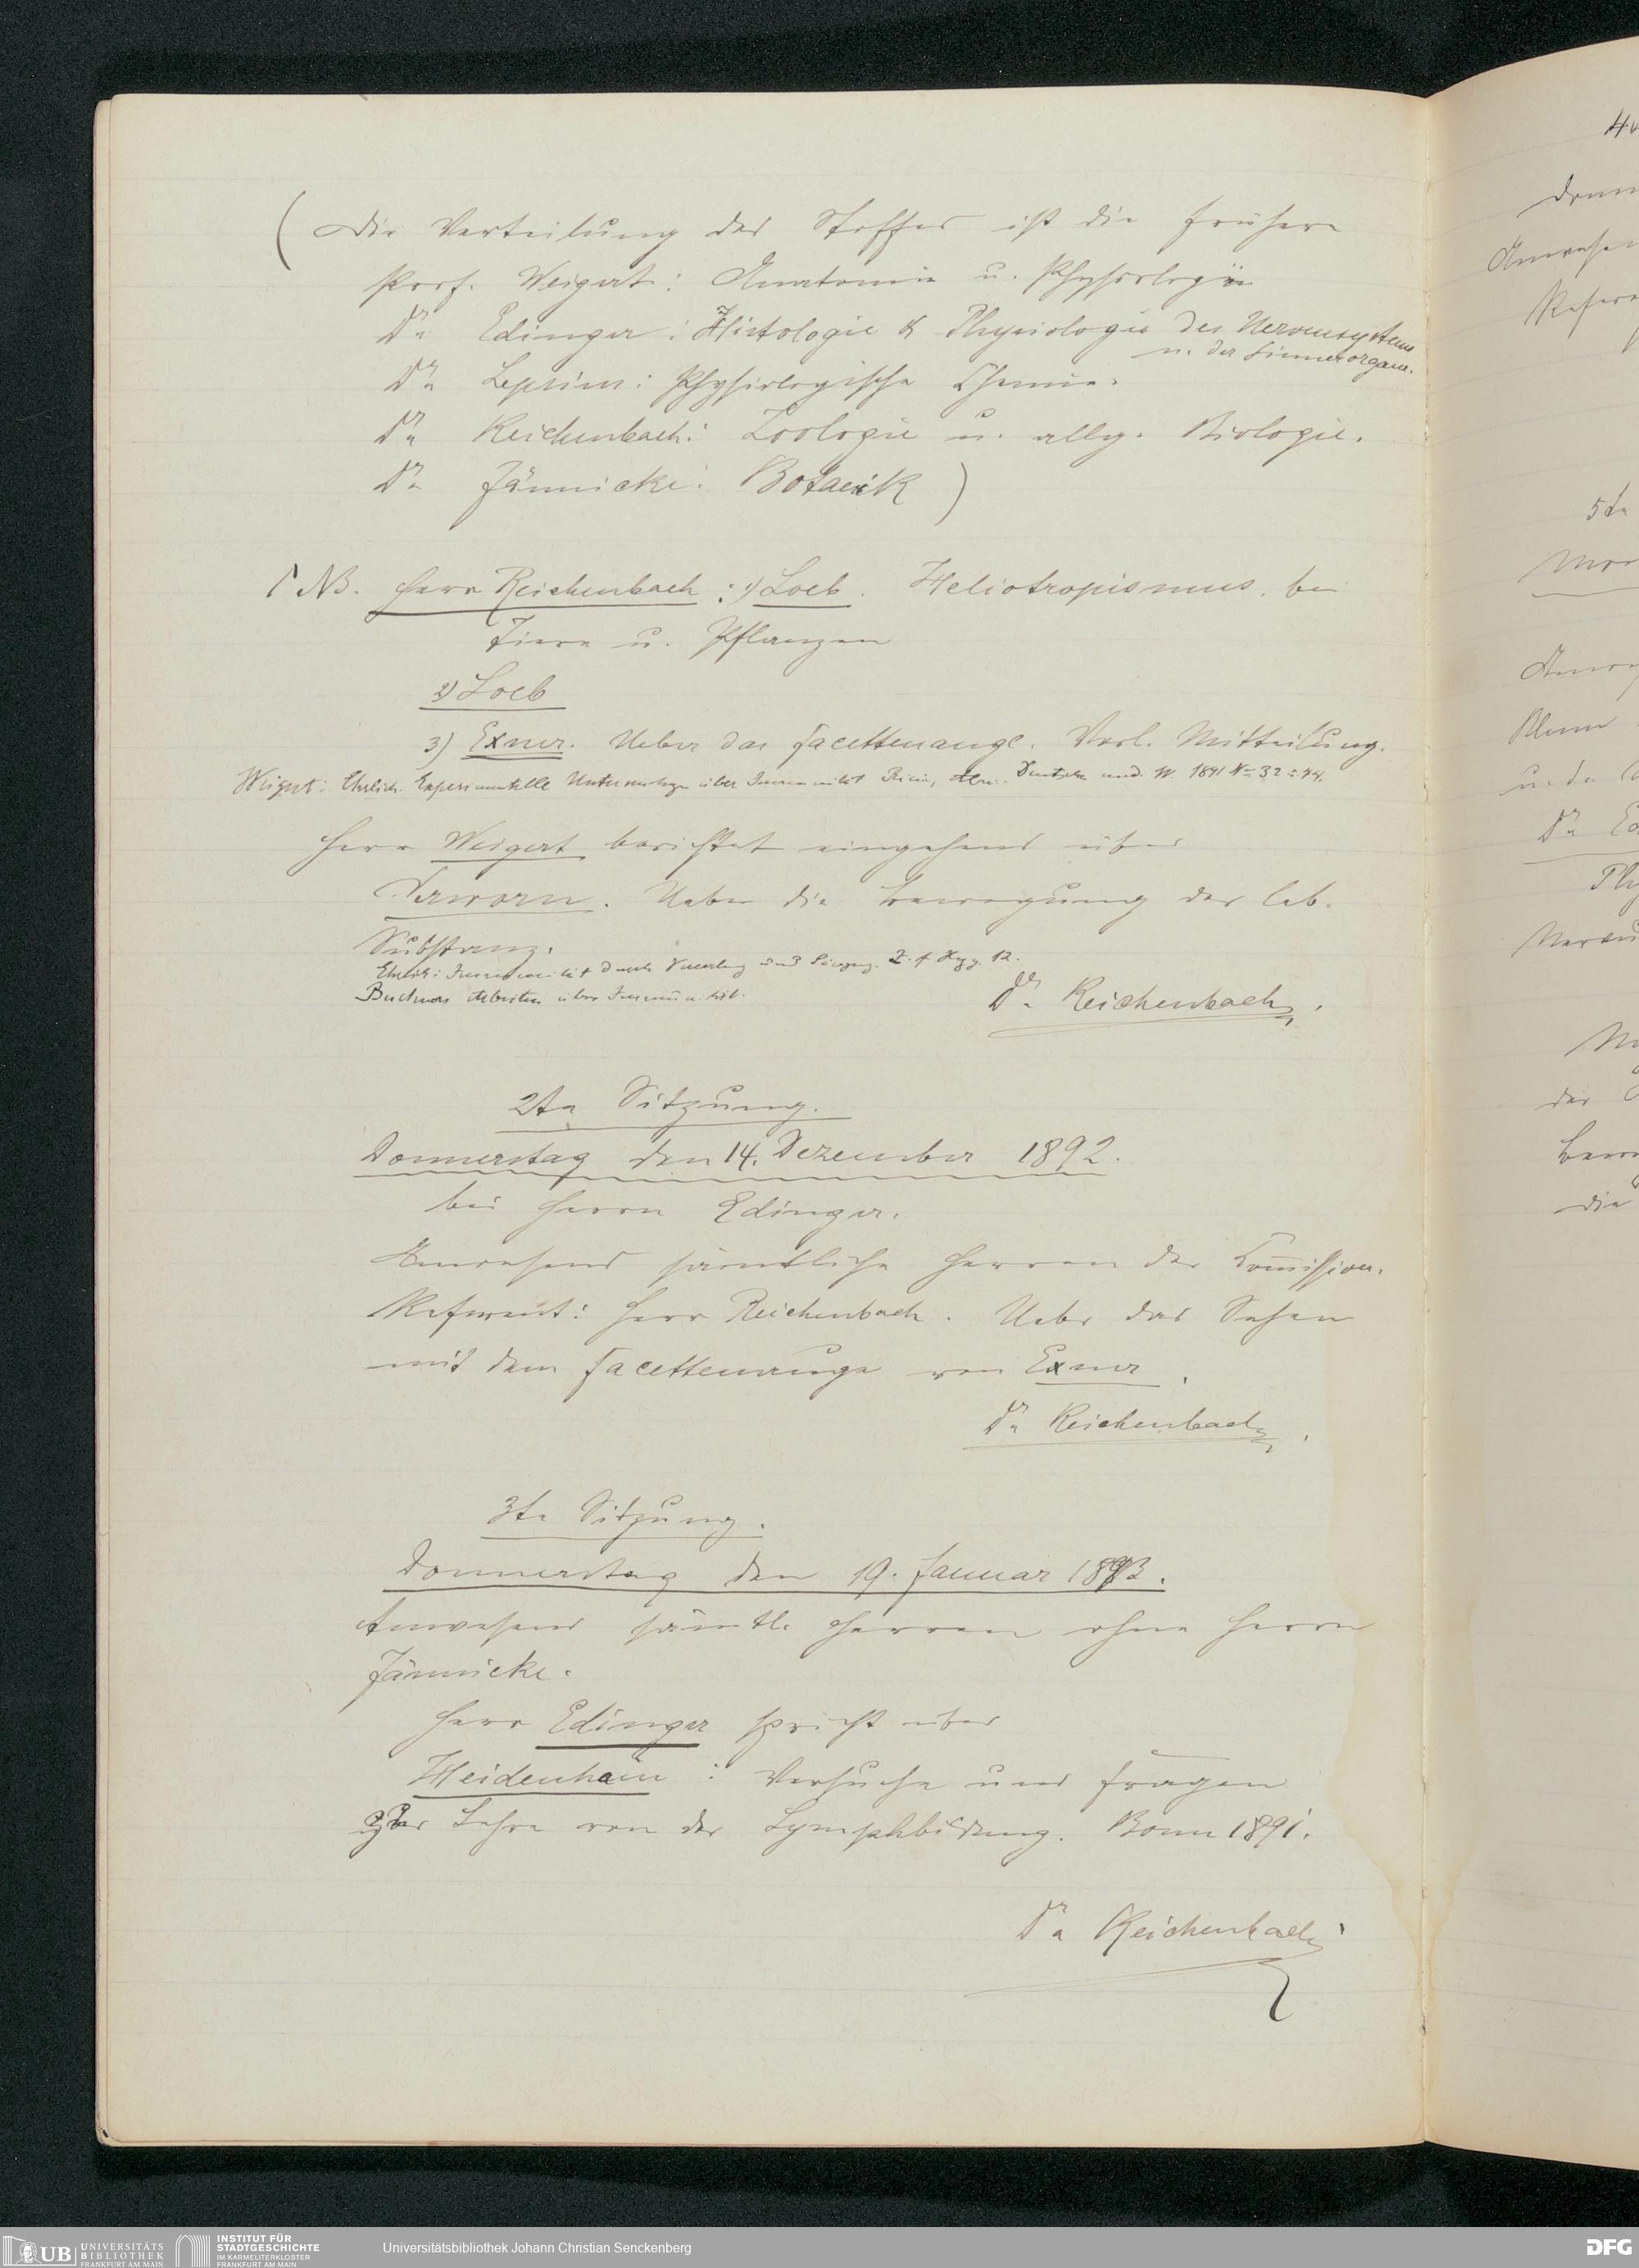 (Die Verteilung des Stoffes ist die frühere
Prof. Weigert: Anatomie u. Physiologie
Dr. Edinger: Histologie & Physiologie des Nervensystems
u. der Sinnesorgane.
Dr. Lepsius: Physiologische Chemie.
Dr. Reichenbach: Zoologie u. allg. Biologie.
Dr. Jännicke: Botanik)
NB. Herr Reichenbach: 1) Loeb. Heliotropismus bei
Tiere u. Pflanzen
2) Loeb
3) Exner. Ueber das Facettenauge. Vorl. Mitteilung.
Weigert: Ehrlich. Experimentelle Untersuchungen über Immunität Ricin, Abrin. Deutsche med. W 1891 No 32 u 44.
Herr Weigert berichtet eingehend über
Verworn. Ueber die Bewegung der leb.
Substanz.
Ehrlich: Immunität durch Vererbung und Säugung. Z. f Hyg. 12.
Buchner Arbeiten über Immunität.
Dr. Reichenbach.
2te Sitzung.
Donnerstag den 14. Dezember 1892.
bei Herrn Edinger.
Anwesend sämtliche Herren der Kom̅ission.
Referent: Herr Reichenbach. Ueber das Sehen
mit dem Facettenauge von Exner.
Dr. Reichenbach.
3te Sitzung.
Donnerstag den 19. Januar 1893.
Anwesend sämtl. Herren ohne Herrn
Jännicke.
Herr Edinger spricht über
Heidenhain: Versuche und Fragen
zur Lehre von der Lymphbildung. Bonn 1891.
Dr. Reichenbach
4te
Donn
Anwesen
Refere
5te
Anwe
Blum
Dr. Ed
der
die
UB UNIVERSITÄTS
BIBLIOTHEK
FRANKFURT AM MAIN
INSTITUT FÜR
STADTGESCHICHTE
IM KARMELITERKLOSTER
FRANKFURT AM MAIN
Universitätsbibliothek Johann Christian Senckenberg
DFG